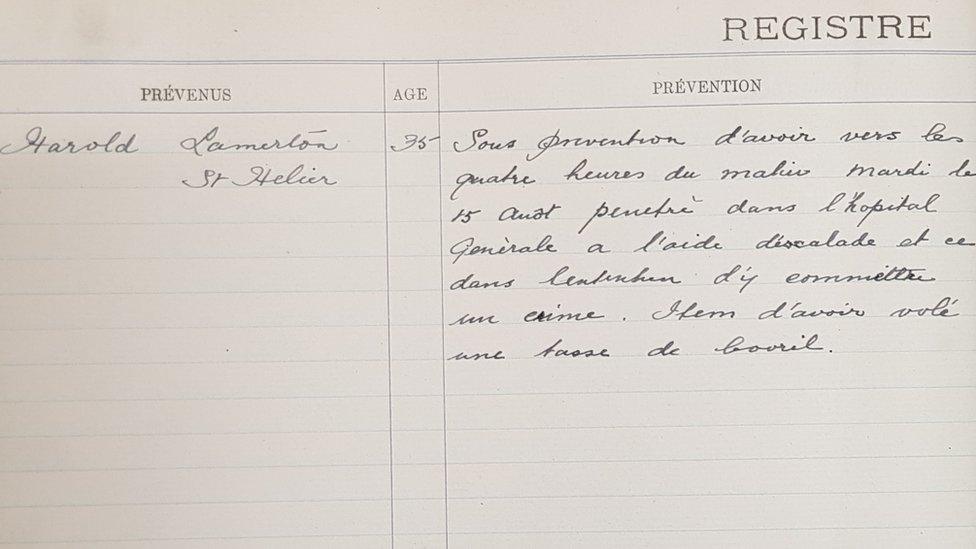 REGISTRE
PRÉVENUS AGE PRÉVENTION
Harold Lamerton 35 Sous prevention d'avoir vers les
St Helier quatre heures du matin Mardi le
15 Août penetré dans l'hopital
Generale a l'aide d'escalade et ce
dans l'entention d'y committre
un crime. Item d'avoir volé
une tasse de bovril.